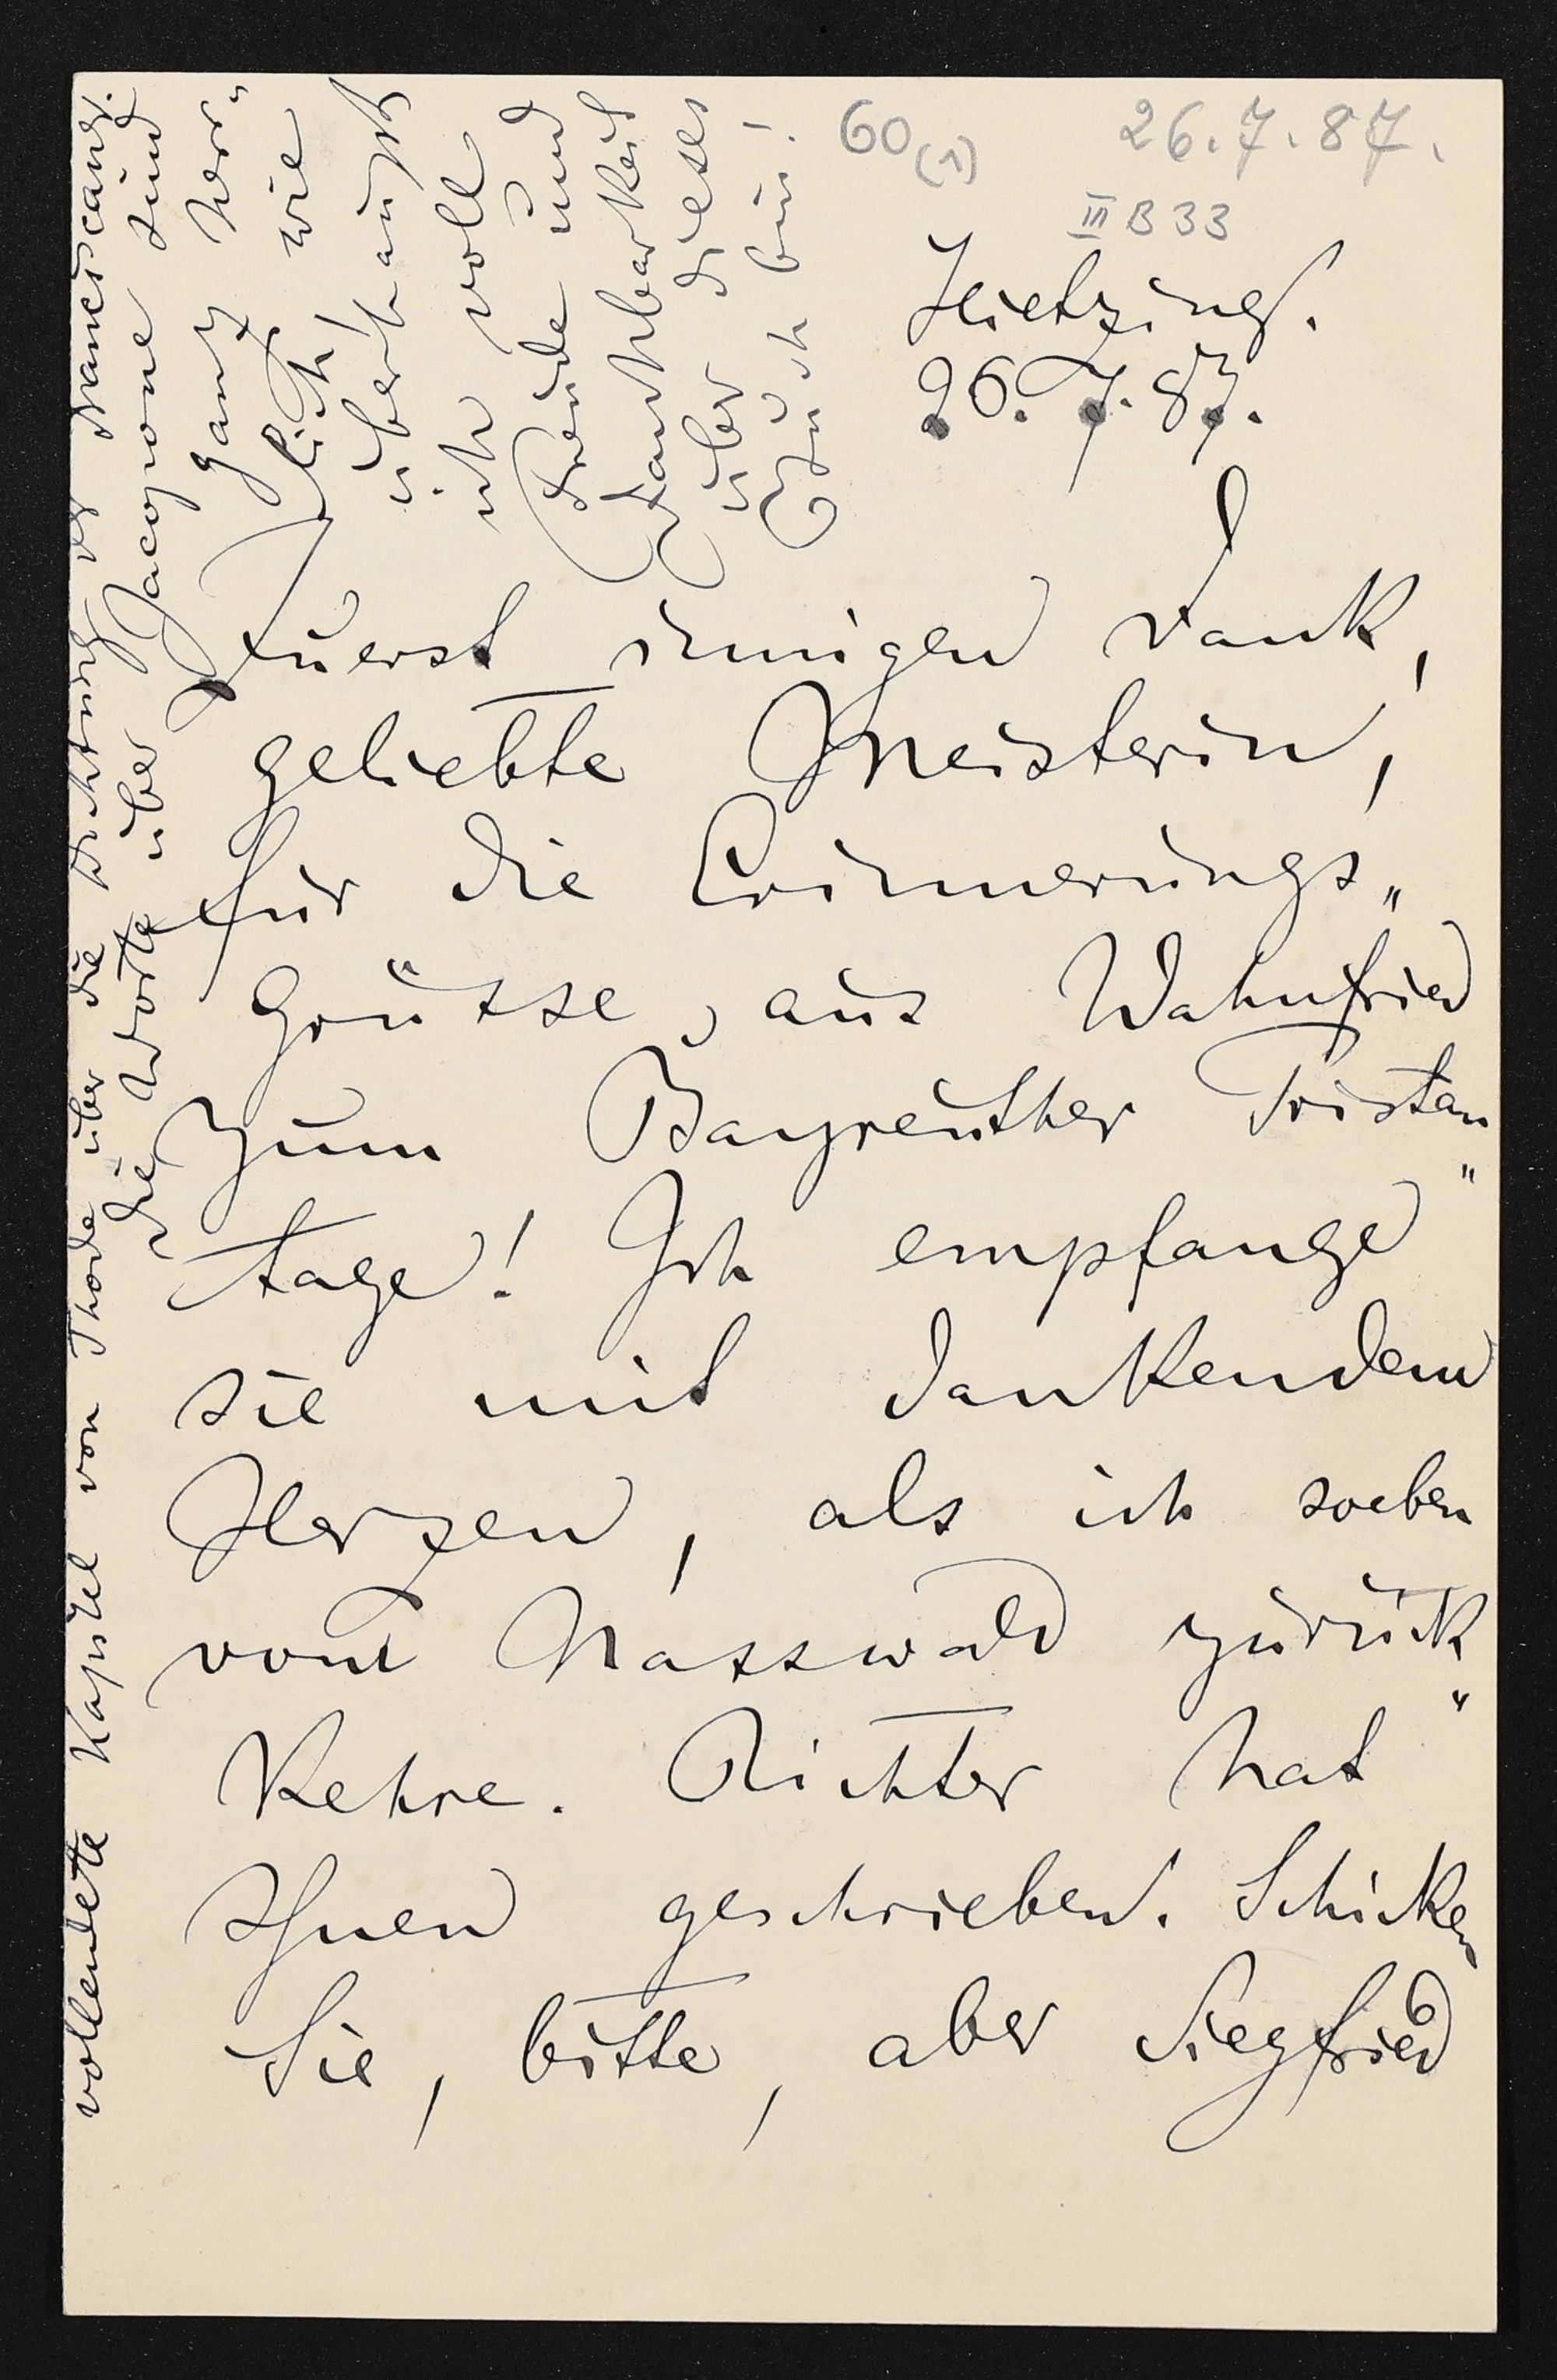 60 (1)
26.7.87.
III B 33
Hietzing.
26.7.87.
Zuerst innigen Dank,
geliebte Meisterin,
für die Erinnerungs„
grüsse, aus Wahnfried
zum Bayreuther Tristan„
tage! Ich empfange
sie mit dankendem
Herzen, als ich soeben
vom Nasswald zurück„
kehre. Richter hat
Ihnen geschrieben. Schicken
Sie, bitte, aber Siegfried
vollendete Kapitel von Thode über die Dichtung der Franciscaner.
Die Worte über Jacopone sind
ganz herr„
lich! wie
überhaupt
ich voll
Freude und
Dankbarkeit
über dieses
Buch bin!